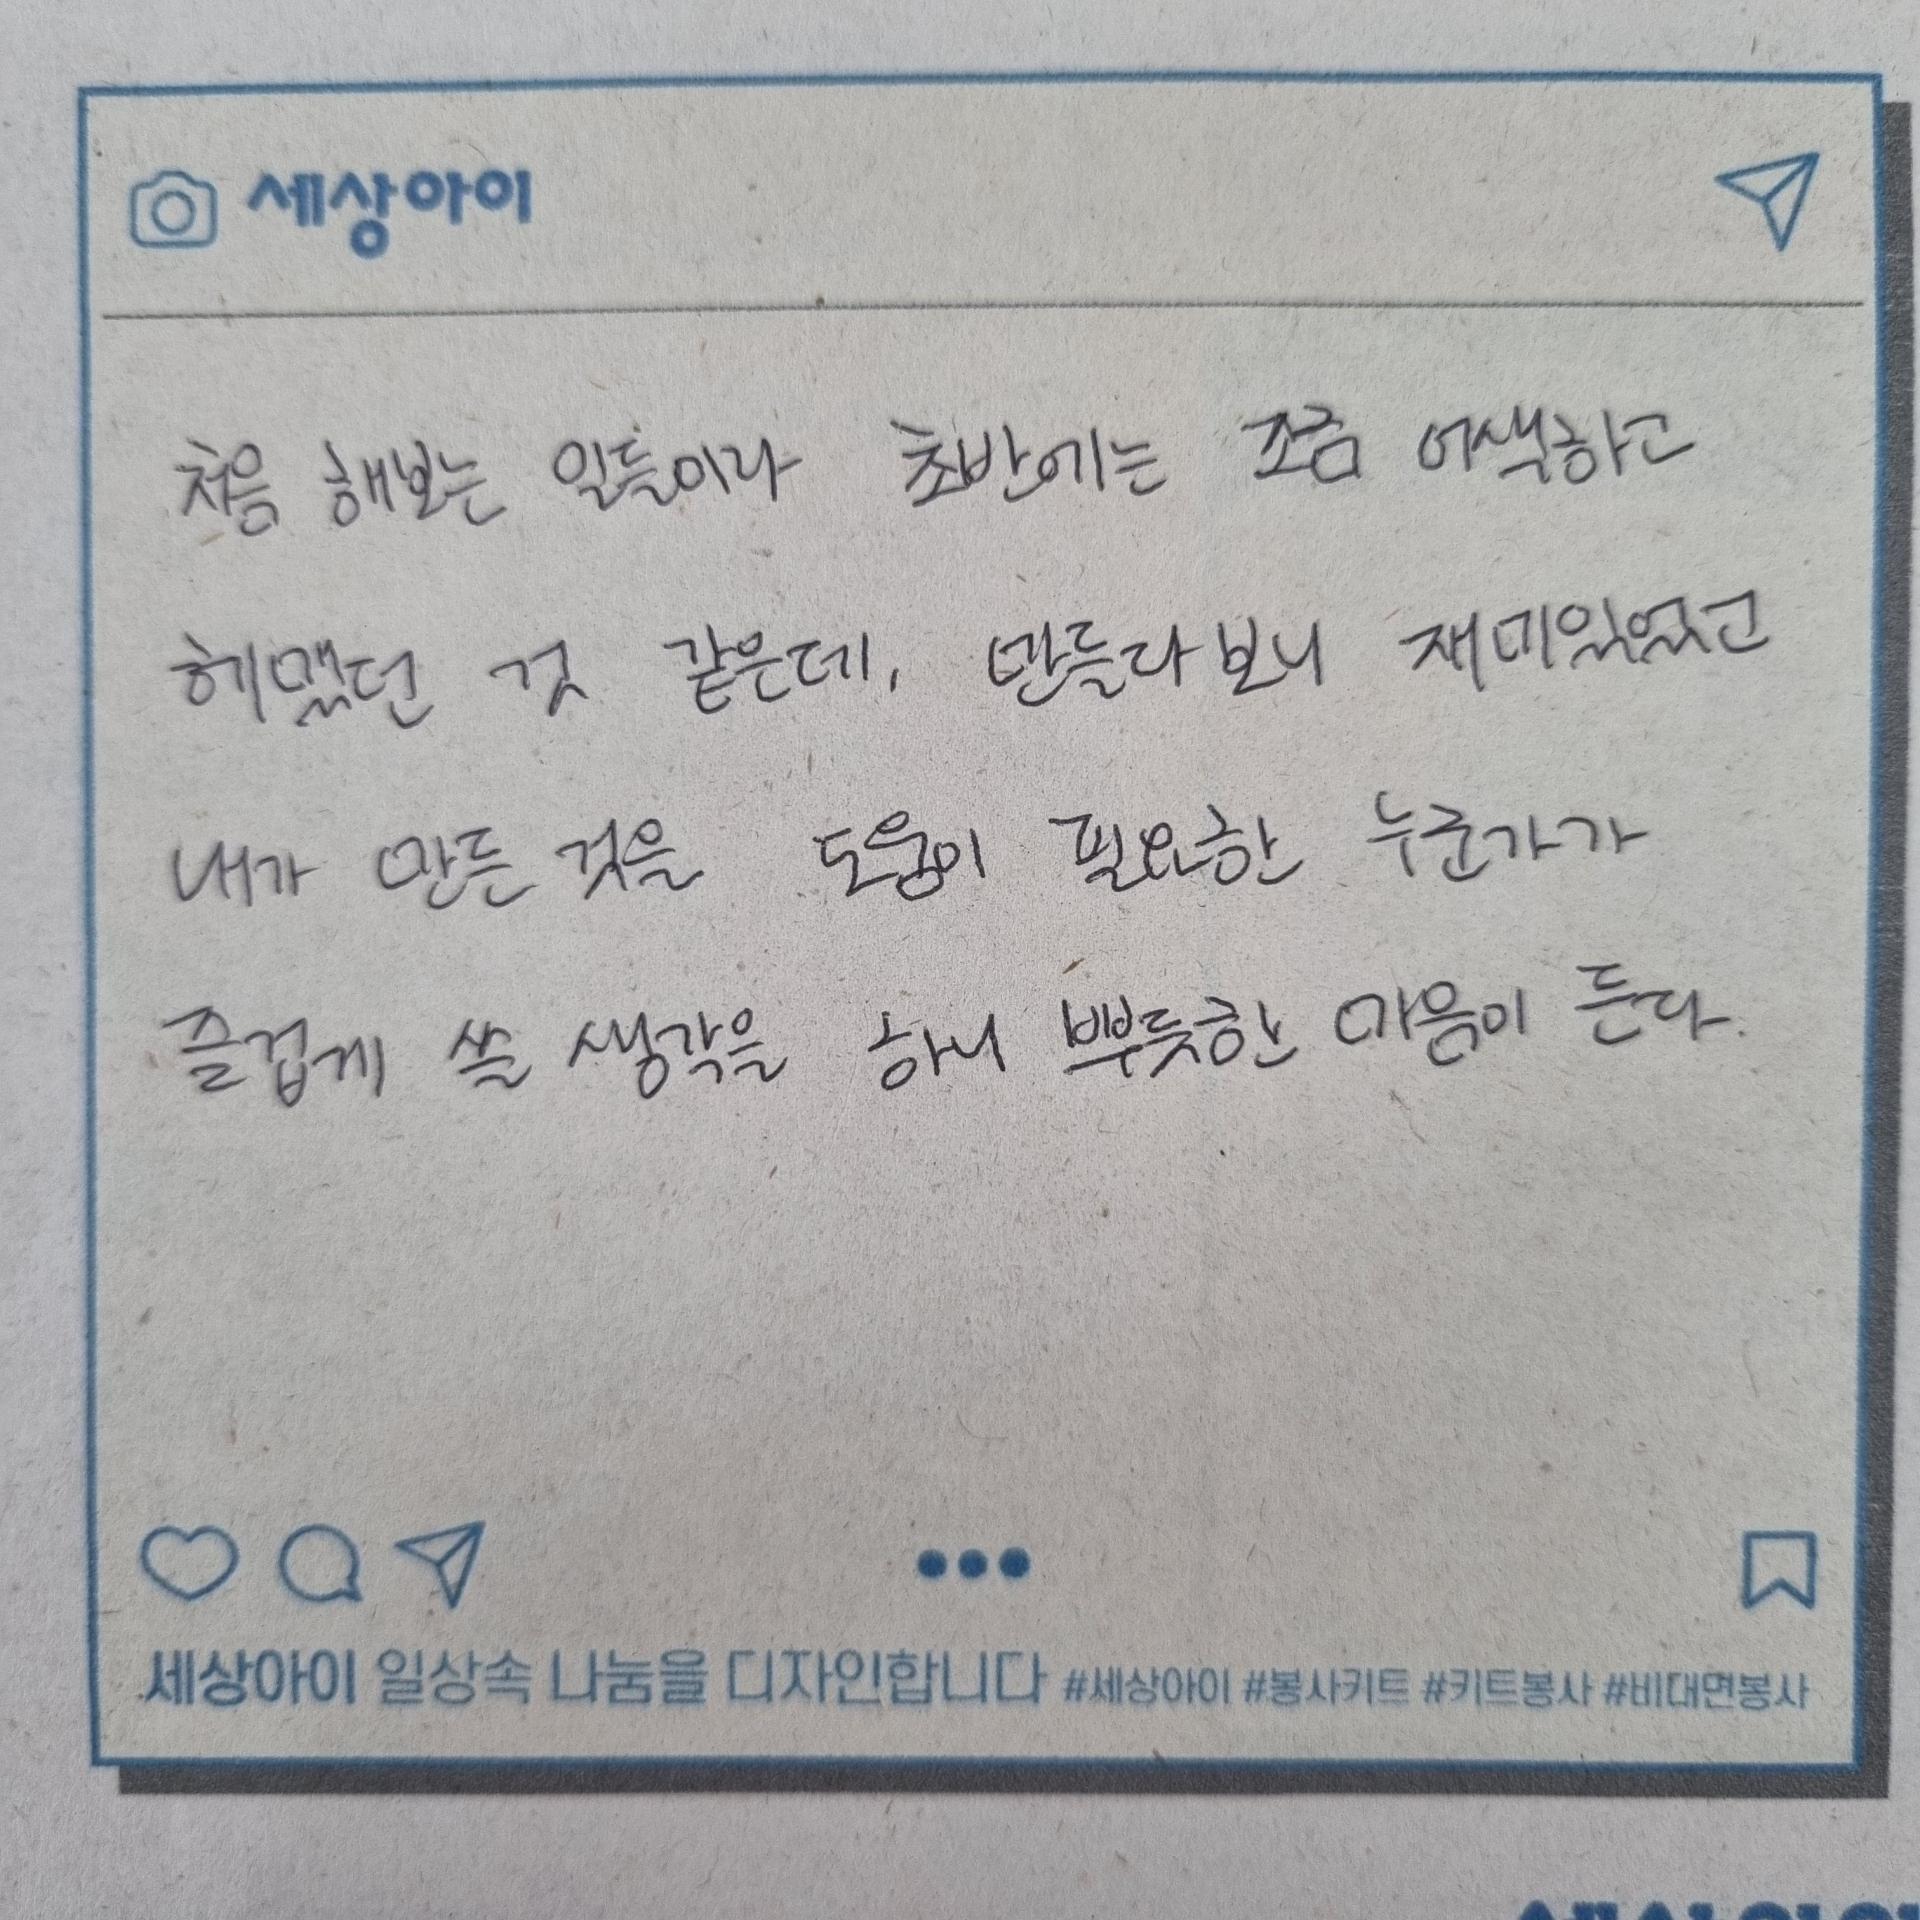 세상아이
처음 해보는 일들이라 초반에는 조금 어색하고
헤맸던 것 같은데, 만들다보니 재미있었고
내가 만든 것을 도움이 필요한 누군가가
즐겁게 쓸 생각을 하니 뿌듯한 마음이 든다.
세상아이 일상속 나눔을 디자인합니다 #세상아이 #봉사키트 #키트봉사 #비대면봉사